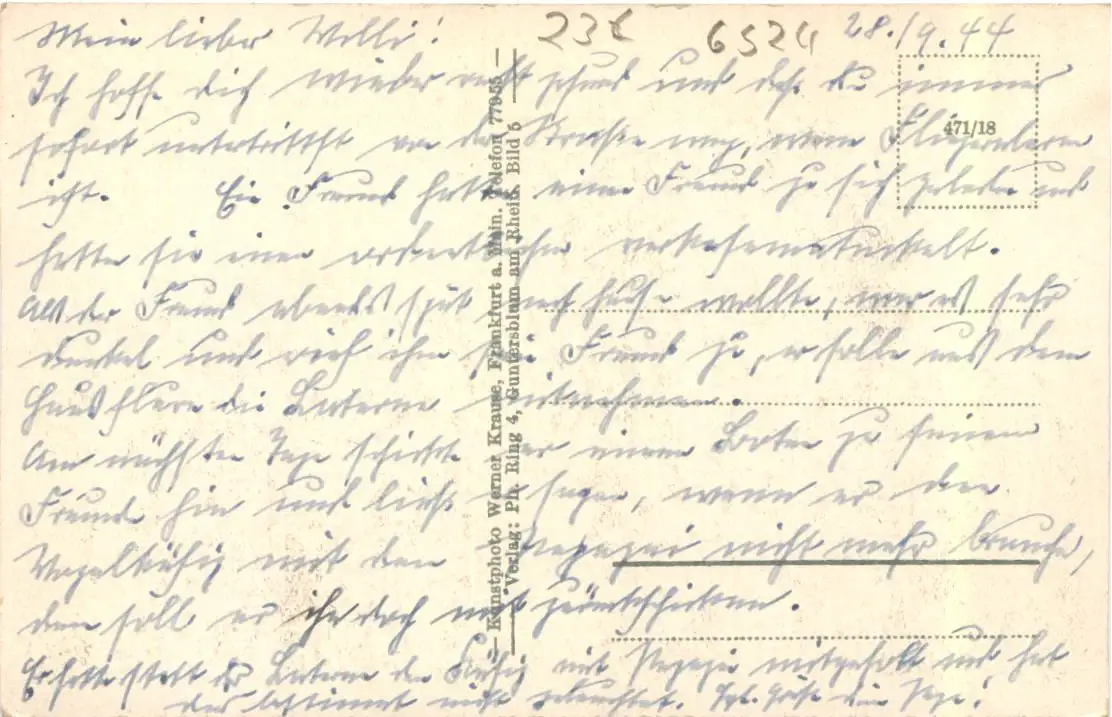 28./9.44
Mein lieber Willi!
Ich hoffe dich wieder recht gesund und daß du immer
sofort unter trittst von der Straße weg, wenn Fliegeralarm
ist. Ein Freund hatte einen Freund zu sich geladen und
hatten sie einen ordentlichen
Als der Freund abends spät nach Hause wollte, war es sehr
dunkel und rief ihm sein Freund zu, er solle aus dem
Hausflure die Laterne mitnehmen.
Am nächsten Tage schickte er einen Boten zu seinem
Freunde hin und ließ sagen, wenn er den
Vogelkäfig mit dem Papagei nicht mehr brauche,
dann soll er ihn doch mit zurückschicken.
Er hatte statt der Laterne den Käfig mit Papagei mitgeholt und hat
der bestimmt nicht geleuchtet. Grüße dein Papa!
6524
471/18
— Kunstphoto Werner Krause, Frankfurt a. Main. Telefon 77955 —
Verlag: Ph. Ring 4, Guntersblum am Rhein. Bild 5